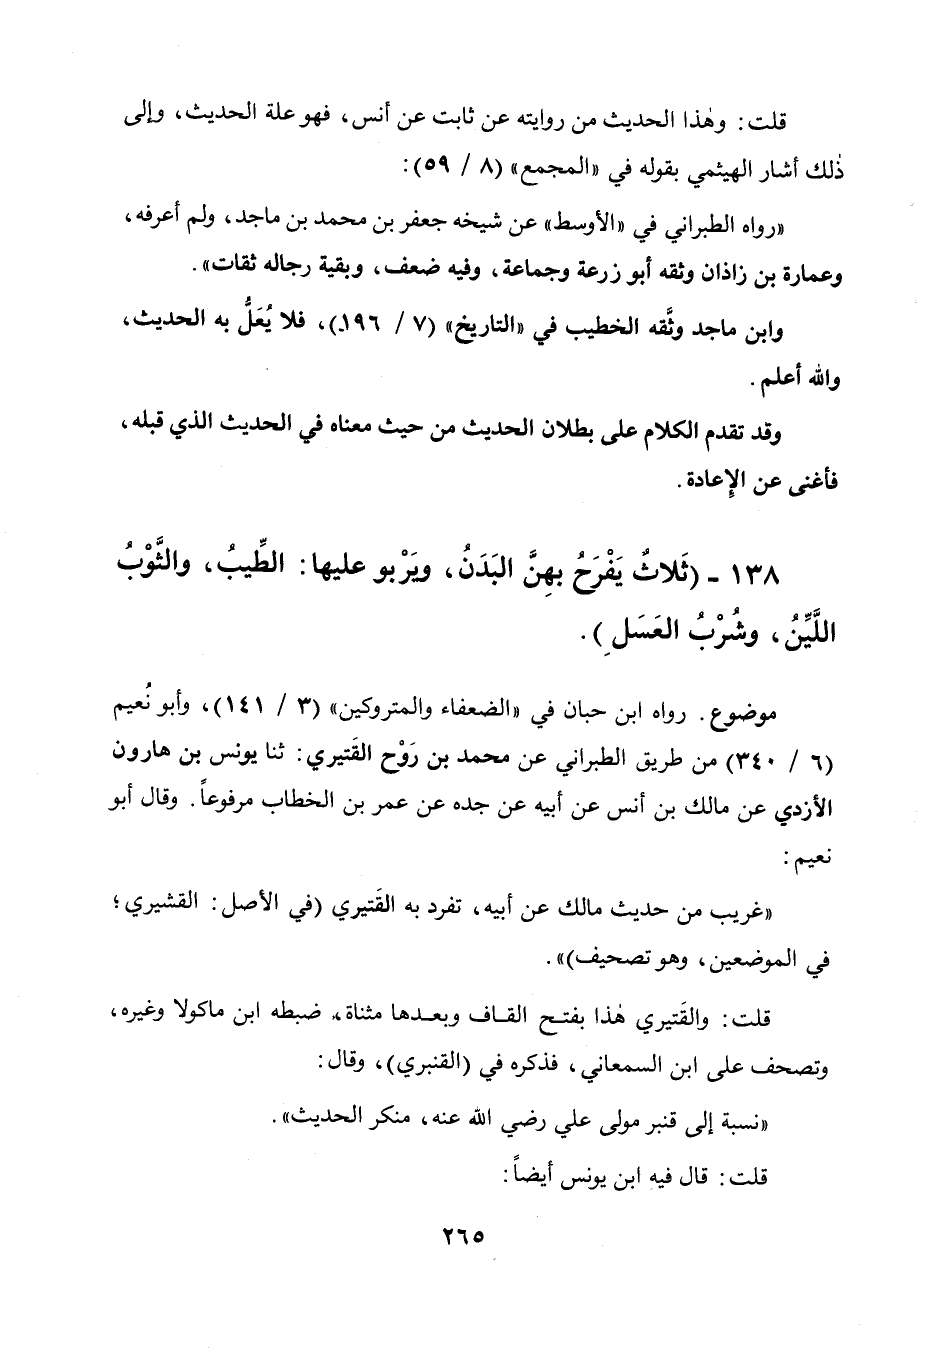 قلت: وهٰذا الحديث من روايته عن ثابت عن أنس، فهو علة الحديث، وإلى
ذٰلك أشار الهيثمي بقوله في «المجمع» (٨ / ٥٩):
«رواه الطبراني في «الأوسط» عن شيخه جعفر بن محمد بن ماجد، ولم أعرفه،
وعمارة بن زاذان وثقه أبو زرعة وجماعة، وفيه ضعف، وبقية رجاله ثقات».
وابن ماجد وثَّقه الخطيب في «التاريخ» (٧ / ١٩٦)، فلا يُعَلُّ به الحديث،
والله أعلم.
وقد تقدم الكلام على بطلان الحديث من حيث معناه في الحديث الذي قبله،
فأغنى عن الإِعادة.
١٣٨ - (ثَلاثٌ يَفْرَحُ بهِنَّ البَدَنُ، ويَرْبو عليها: الطِّيبُ، والثَّوْبُ
اللَّيِّنُ، وشُرْبُ العَسَلِ).
موضوع. رواه ابن حبان في «الضعفاء والمتروكين» (٣ / ١٤١)، وأبو نُعيم
(٦ / ٣٤٠) من طريق الطبراني عن محمد بن رَوْح القَتيري: ثنا يونس بن هارون
الأزدي عن مالك بن أنس عن أبيه عن جده عن عمر بن الخطاب مرفوعاً. وقال أبو
نعيم:
«غريب من حديث مالك عن أبيه، تفرد به القَتيري (في الأصل: القشيري؛
في الموضعين، وهو تصحيف)».
قلت: والقَتيري هٰذا بفتح القاف وبعدها مثناة، ضبطه ابن ماكولا وغيره،
وتصحف على ابن السمعاني، فذكره في (القنبري)، وقال:
«نسبة إلى قنبر مولى علي رضي الله عنه، منكر الحديث».
قلت: قال فيه ابن يونس أيضاً:
٢٦٥